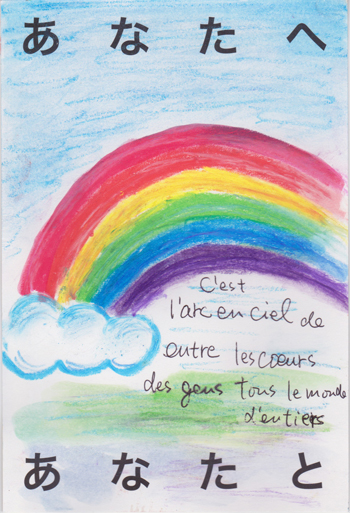 あなたへ
C'est
l'arc en ciel de
outre les cœurs
des gens tous le monde
d'entiers
あなたと